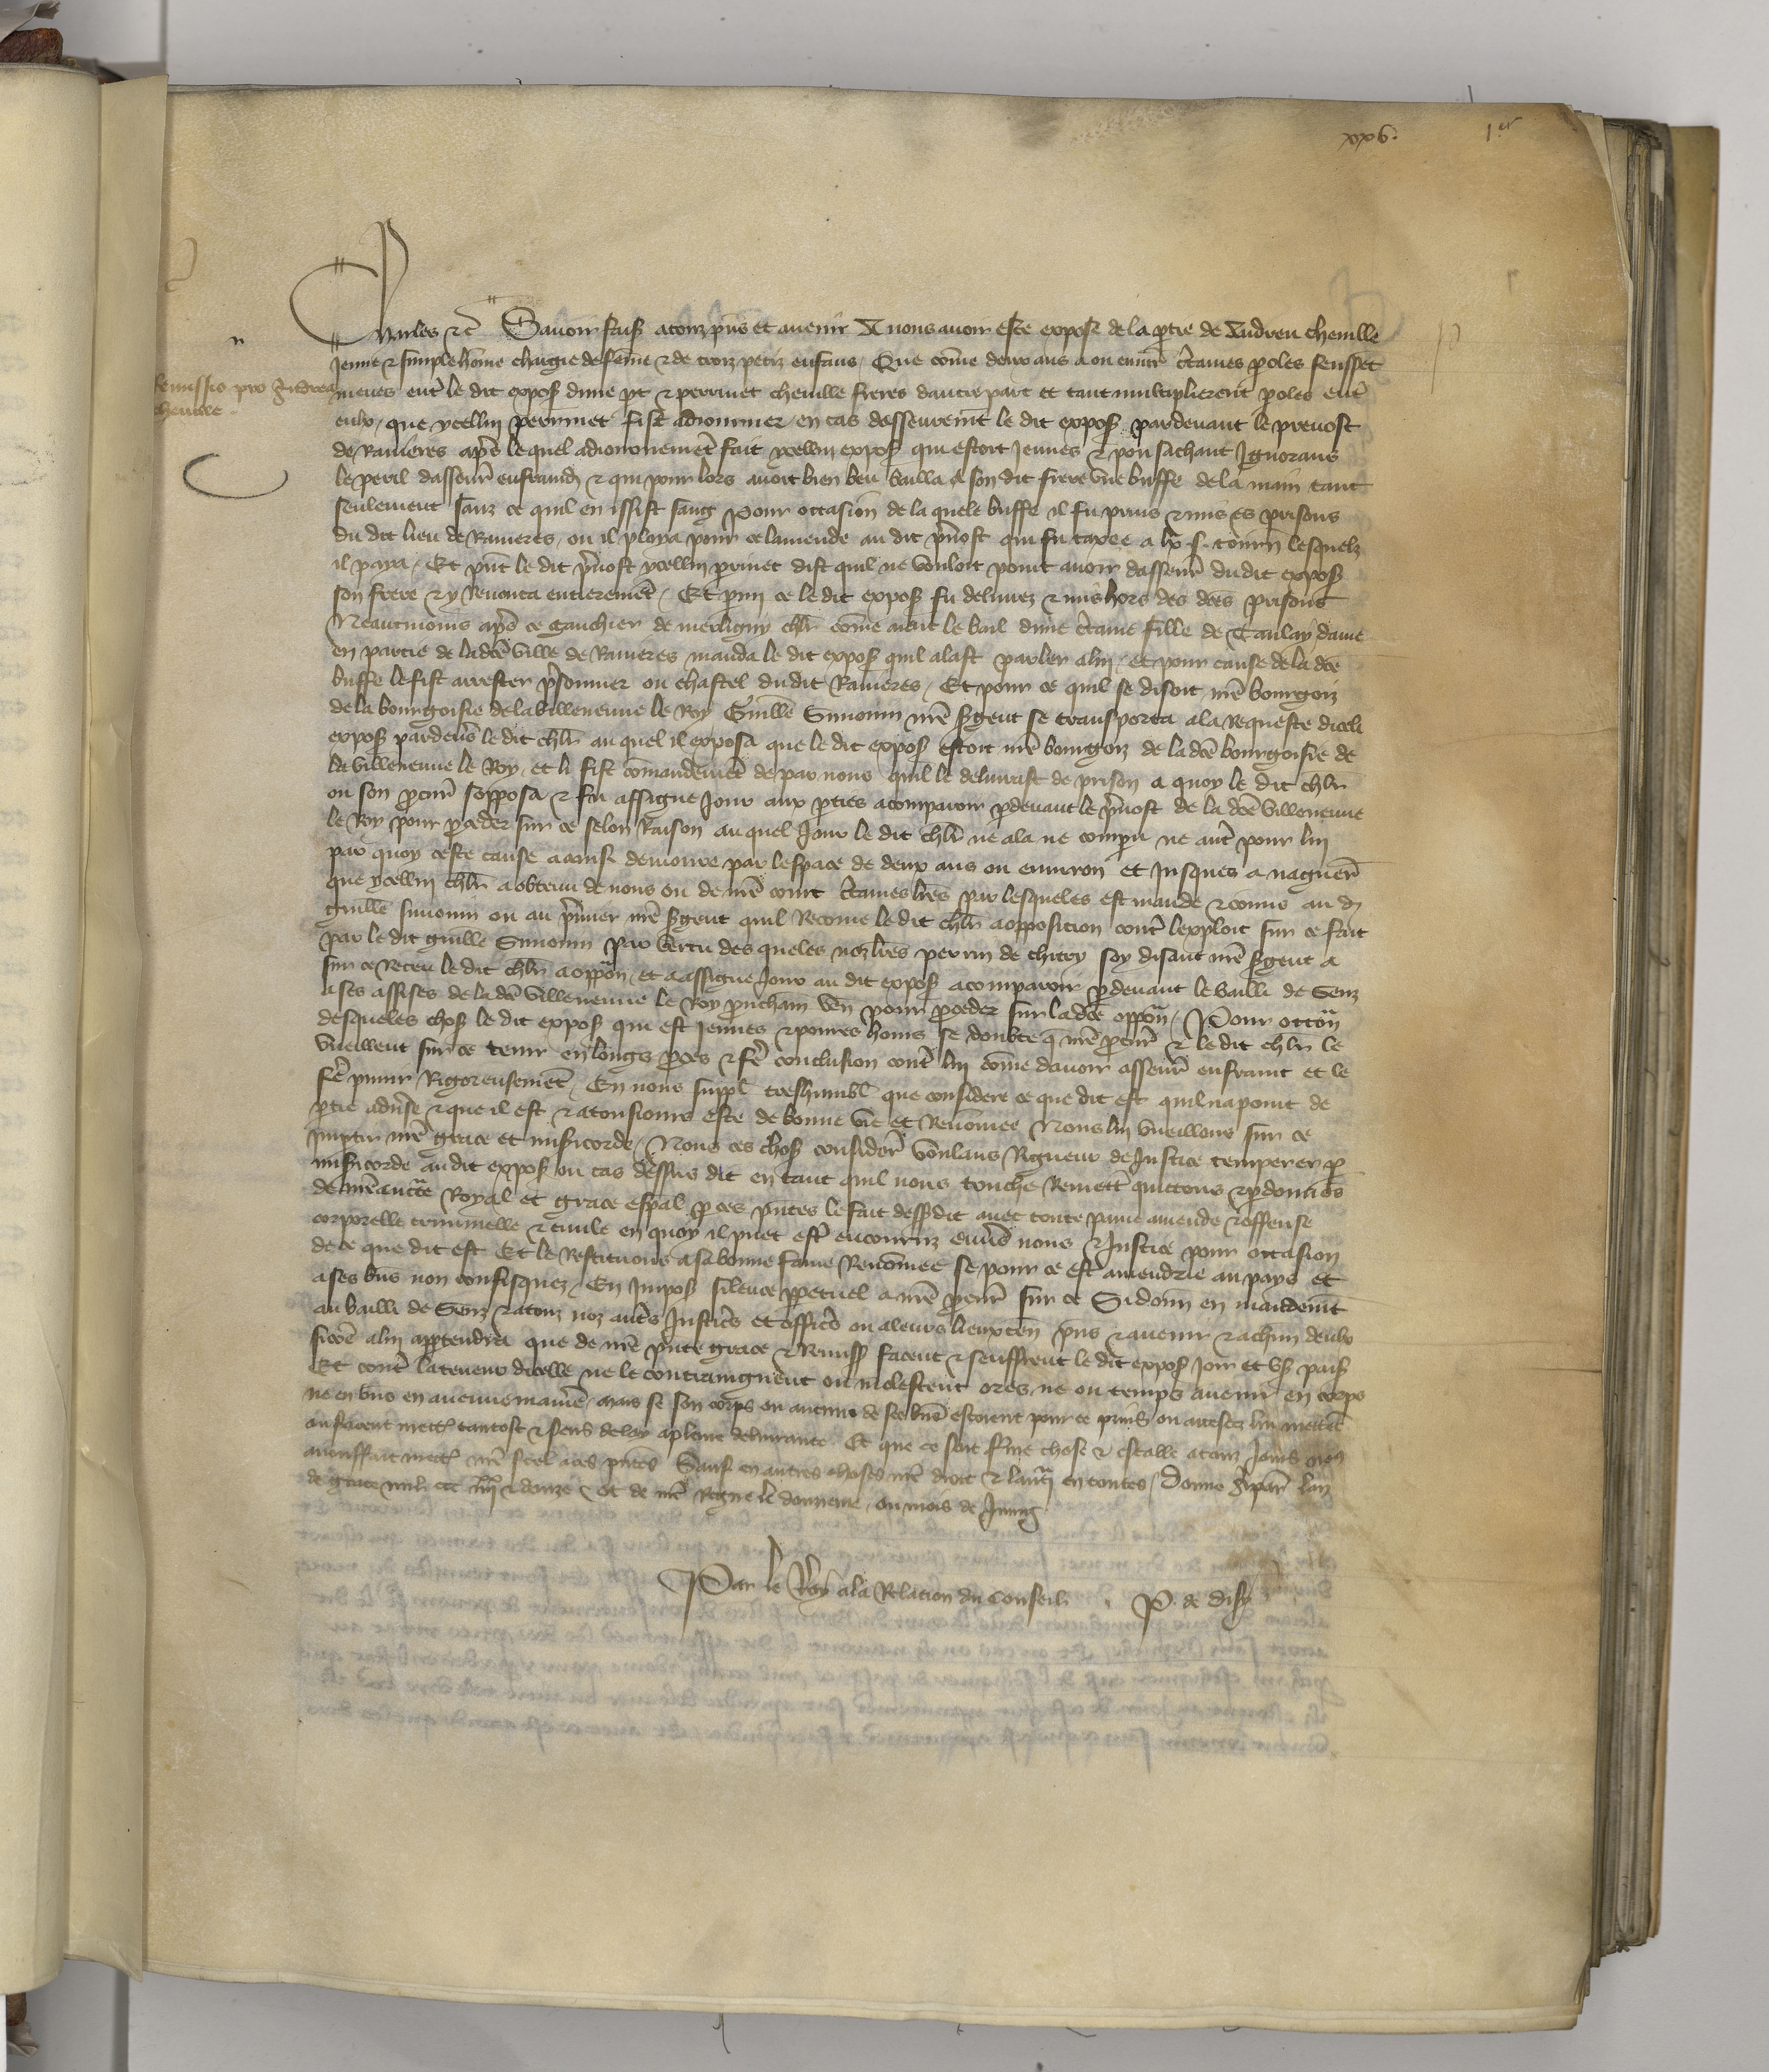 xxv. 1er
Charles etc. Savoir faisõ a touz p̃ns et avenir A nous avoir este expose de la p̃tie de Andreu Chenille
Jeune & simple hõme chargie de fẽme & de trois petiz enfans, Que cõme deux ans a ou envir̃ c̃taines p̃oles feussẽt
Remissio pro Andrea
Chenille
meues ent̃ le dit expos̃ dune p̃t & perrinet chenille freres dautre part et tant multiplierent p̃oles ent̃
eulx, que ycellui perrinet fist adiourner en cas dasseuremẽt le dit expos̃ pardevant le prevost
de Ravieres ap̃s le quel adiournemẽt fait ycellui expos̃ qui estoit Jeunes & non sachant Ignorans
le peril dasseur̃ enfraind̃ & qui pour lors avoit bien beu bailla a son dit frere une buffe de la main tant
seulement sanz ce quil en issist sang Pour occasion de la quele buffe il fu prins & mis es prisons
du dit lieu de Ravieres, ou il ploya pour ce lamende au dit p̃vost qui fu taxee a lx s. tourñ lesquelz
il paya, Et p̃nt le dit p̃vost ycellui perinet dist quil ne vouloit point avoir dasseur̃ dudit expos̃
son frere & y Renonca entieremẽt, Et p̃mi ce le dit expos̃ fu delivrez & mis hors des d̃ces prisons
Neantmoins ap̃s ce Gauchier de merligny chl̃r cõme aient le bail dune c̃taine fille de Tanlay dame
en partie de lad̃ce ville de Ravieres manda le dit expos̃ quil alast parler a lui, et pour cause de la d̃ce
buffe le fist arrester p̃sonnier ou chastel dudit Ravieres, Et pour ce quil se disoit ñre bourgois
de la bourgoisie de la villeneuve le Roy Guill̃e Simonin ñre s̃gent se transporta a la Requeste dicelli
expos̃ pardeṽs le dit chl̃r au quel il exposa que le dit expos̃ estoit ñre bourgois de la d̃ce bourgoisie de
la villeneuve le Roy, et li fist cõmandemẽt de par nous quil le delivrast de prison a quoy le dit chl̃r
ou son p̃cur̃ sopposa & fu assigne Jour aux p̃ties a comparoir p̃devant le p̃vost de la d̃ce villeneuve
le Roy pour p̃ceder sur ce selon Raison au quel Jour le dit chl̃r ne ala ne compu ne aut̃ pour lui
par quoy ceste cause a ainsi demoure par lespace de deux ans ou environ et Jusques a nagueres̃
que ycellui chl̃r a obtenu de nous ou de ñre court c̃taines l̃res par lesqueles est mande & cõmis au d̃
guill̃e simonin ou au p̃mier ñre s̃gent quil Recoive le dit chl̃r a opposicion cont̃ lexploit sur ce fait
par le dit guill̃e Simonin Par vertu des queles noz l̃res perrin de chitry soy disant ñre s̃gent a
sur ce Receu le dit chl̃r a opp̃on, et a assigne Jour au dit expos̃ a comparoir p̃devant le bailli de Senz
a ses assises de lad̃ce villeneuve le Roy p̃ucham veñ pour p̃ceder sur la d̃ce opp̃on, Pour occ̃on
desqueles chos̃ le dit expos̃ qui est Jeunes & povres homs se doubte q̃ ñre p̃cur̃ & le dit chl̃r le
vueillent sur ce tenir en longs p̃ces & f̃e conclusion cont̃ lui cõme davoir asseur̃ enfraint et le
f̃e punir Rigoreusemẽt, En nous suppl̃ treshumbl̃ que considere ce que dit est quil na point de
p̃tie adṽse & que il est & a tousiours este de bonne vie et Renõmee Nous lui vueillons sur ce
Imp̃tir ñre grace et mis̃icorde, Nous ces chos̃ consider̃ voulans Rigueur de Justice temperer p̃
mis̃icorde au dit expos̃ ou cas dessus dit en tant quil nous touche Remett̃ quictons & p̃donnõs
de ñre auct̃e Royal et grace esp̃al p̃ ces p̃ntes le fait dess̃dit avec toute paine amende & offense
corporelle criminelle & civile en quoy il puet est̃ encouruz enṽs nous & Justice pour occasion
de ce que dit est Et le Restituons a sa bonne fame Renõmee se pour ce est amendrie au pays et
a ses b̃ns non confisquez, En Impos̃ silence p̃petuel a ñre p̃cur̃ sur ce Si donñ en mandemẽt
au bailli de Senz & a touz noz aut̃s Justic̃s et offic̃s ou a leurs lieuxteñ p̃ns & avenir & a chũn deulx
sicõe a lui appartendra que de ñre p̃nte grace & Remiss̃ facent & seuffrent le dit expos̃ Joir et us̃ paisõ
Et cont̃ la teneur dicelle ne le contraingnent ou molestent ores ne ou temps avenir en corps
ne en b̃ns en aucune manier̃e, mais se son corps ou aucuns de ses biẽs estoient pour ce prins ou arrestez lui mettẽt
ou facent mett̃e tantost & sens delay a plaine delivrance Et que ce soit f̃me chose & estable a touz Jours nous
avons fait mett̃e ñre scel a ces p̃ntes Sauf en autres choses ñre droit & lautr̃i en toutes, Donne a par̃ lan
de grace mil ccc iiii xx & donze & de ñre Regne le douzieme, ou mois de Juing
Par le Roy a la Relacion du Conseil. P. de Disy